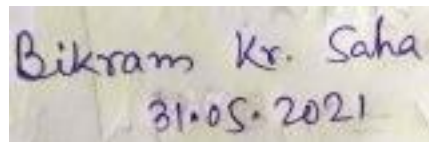 Bikram Kr. Saha
31.05.2021